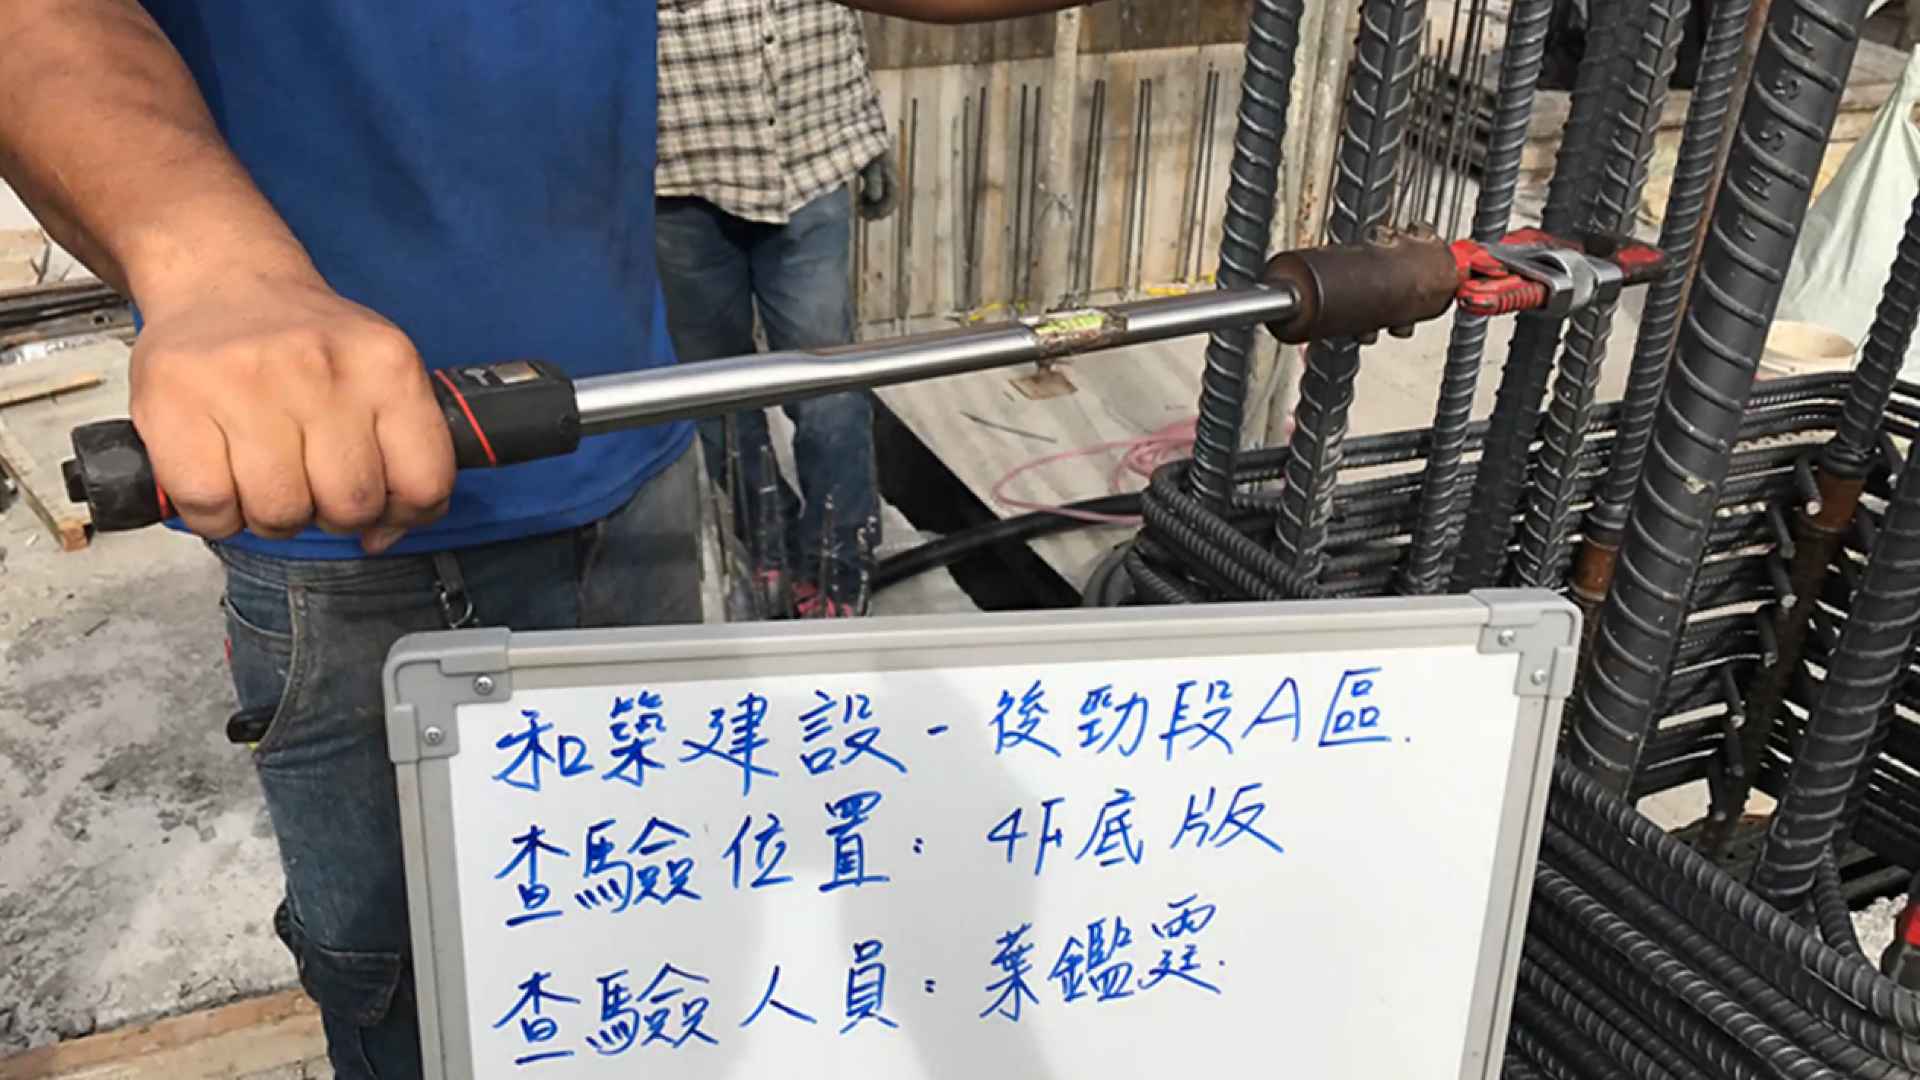 和築建設-後勁段A區.
查驗位置:4F底版
查驗人員:葉鑑霆.